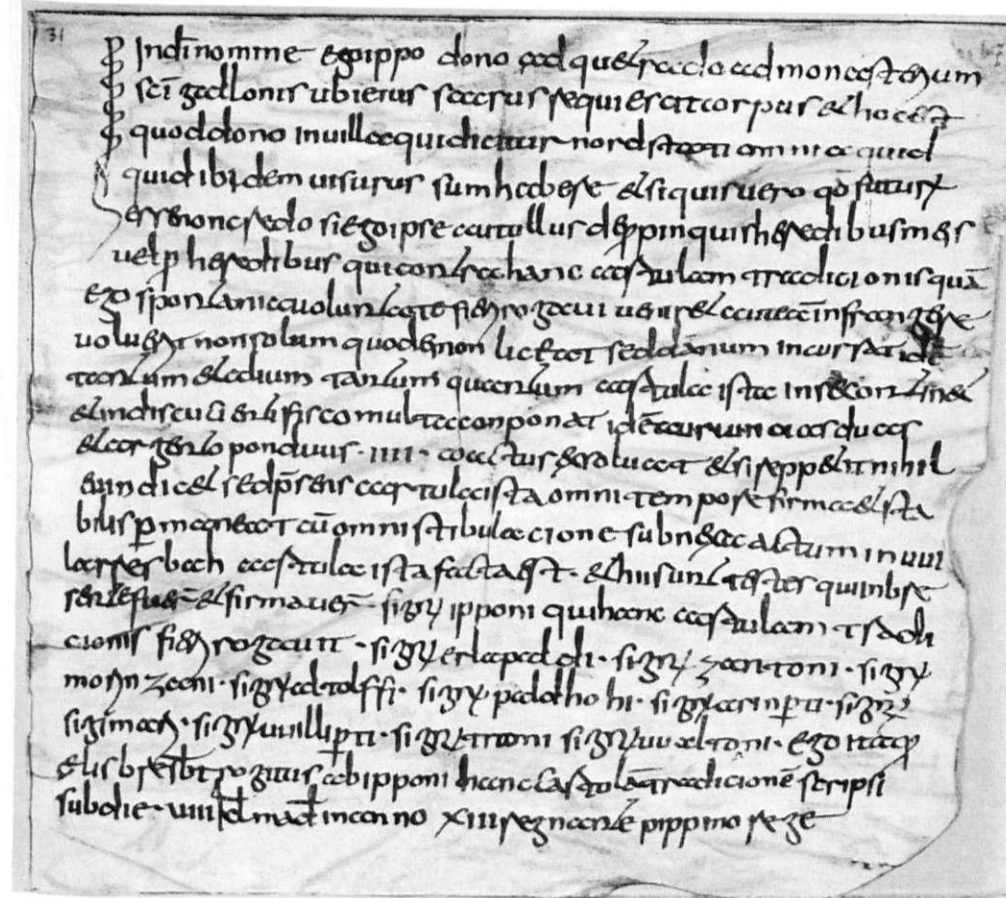 31
In dī nomine ego ippo dono adque trado ad monasterium
sc̄i gallonis ubi eius sacrus requiescit corpus et hoc est
quod dono in uilla qui dicitur nordstati omnia quid
quid ibidem uisurus sum habere et si quis uero qd̄ futurū
esse non credo si ego ipse aut ullus de p̱pinquis heredibus meis
uel p̱heredibus qui contra hanc cartulam tradicionis quā
ego spontania uoluntate fieri rogaui uenire aut eā infrangere
uoluerit non solum quod ei non liceat sed damnum incurrat idē
tantum et alium tantum quantum cartula ista in se continet
et indiscucienti fisco multa conponat idē aurum uncias duas
et argento ponduus · IIII · coactus exsoluat et si reppetit nihil
euindicet sed p̄sens cartula ista omni tempore firma et sta
bilis p̱maneat cū omni stibulacione subnexa actum in uui
larresbach cartula ista facta est · et hii sunt testes qui inbre
senti fuer̄ et firmauer̄ · signū ipponi qui hanc cartulam tradi
cionis fieri rogauit · signū erlapaldi · signū zantoni · signū
morinzani · signū adtolffi · signū paldhohi · signū arinp̱ti · signū
sigimari · signū uuillip̱ti · signū trutoni signū uualtoni · ego itaq
elis bresbt rogitus ab ipponi hanc cartolā tradicionē scripsi
sub die · VIIII kl̄ mad̄ in anno XIII regnante pippino rege